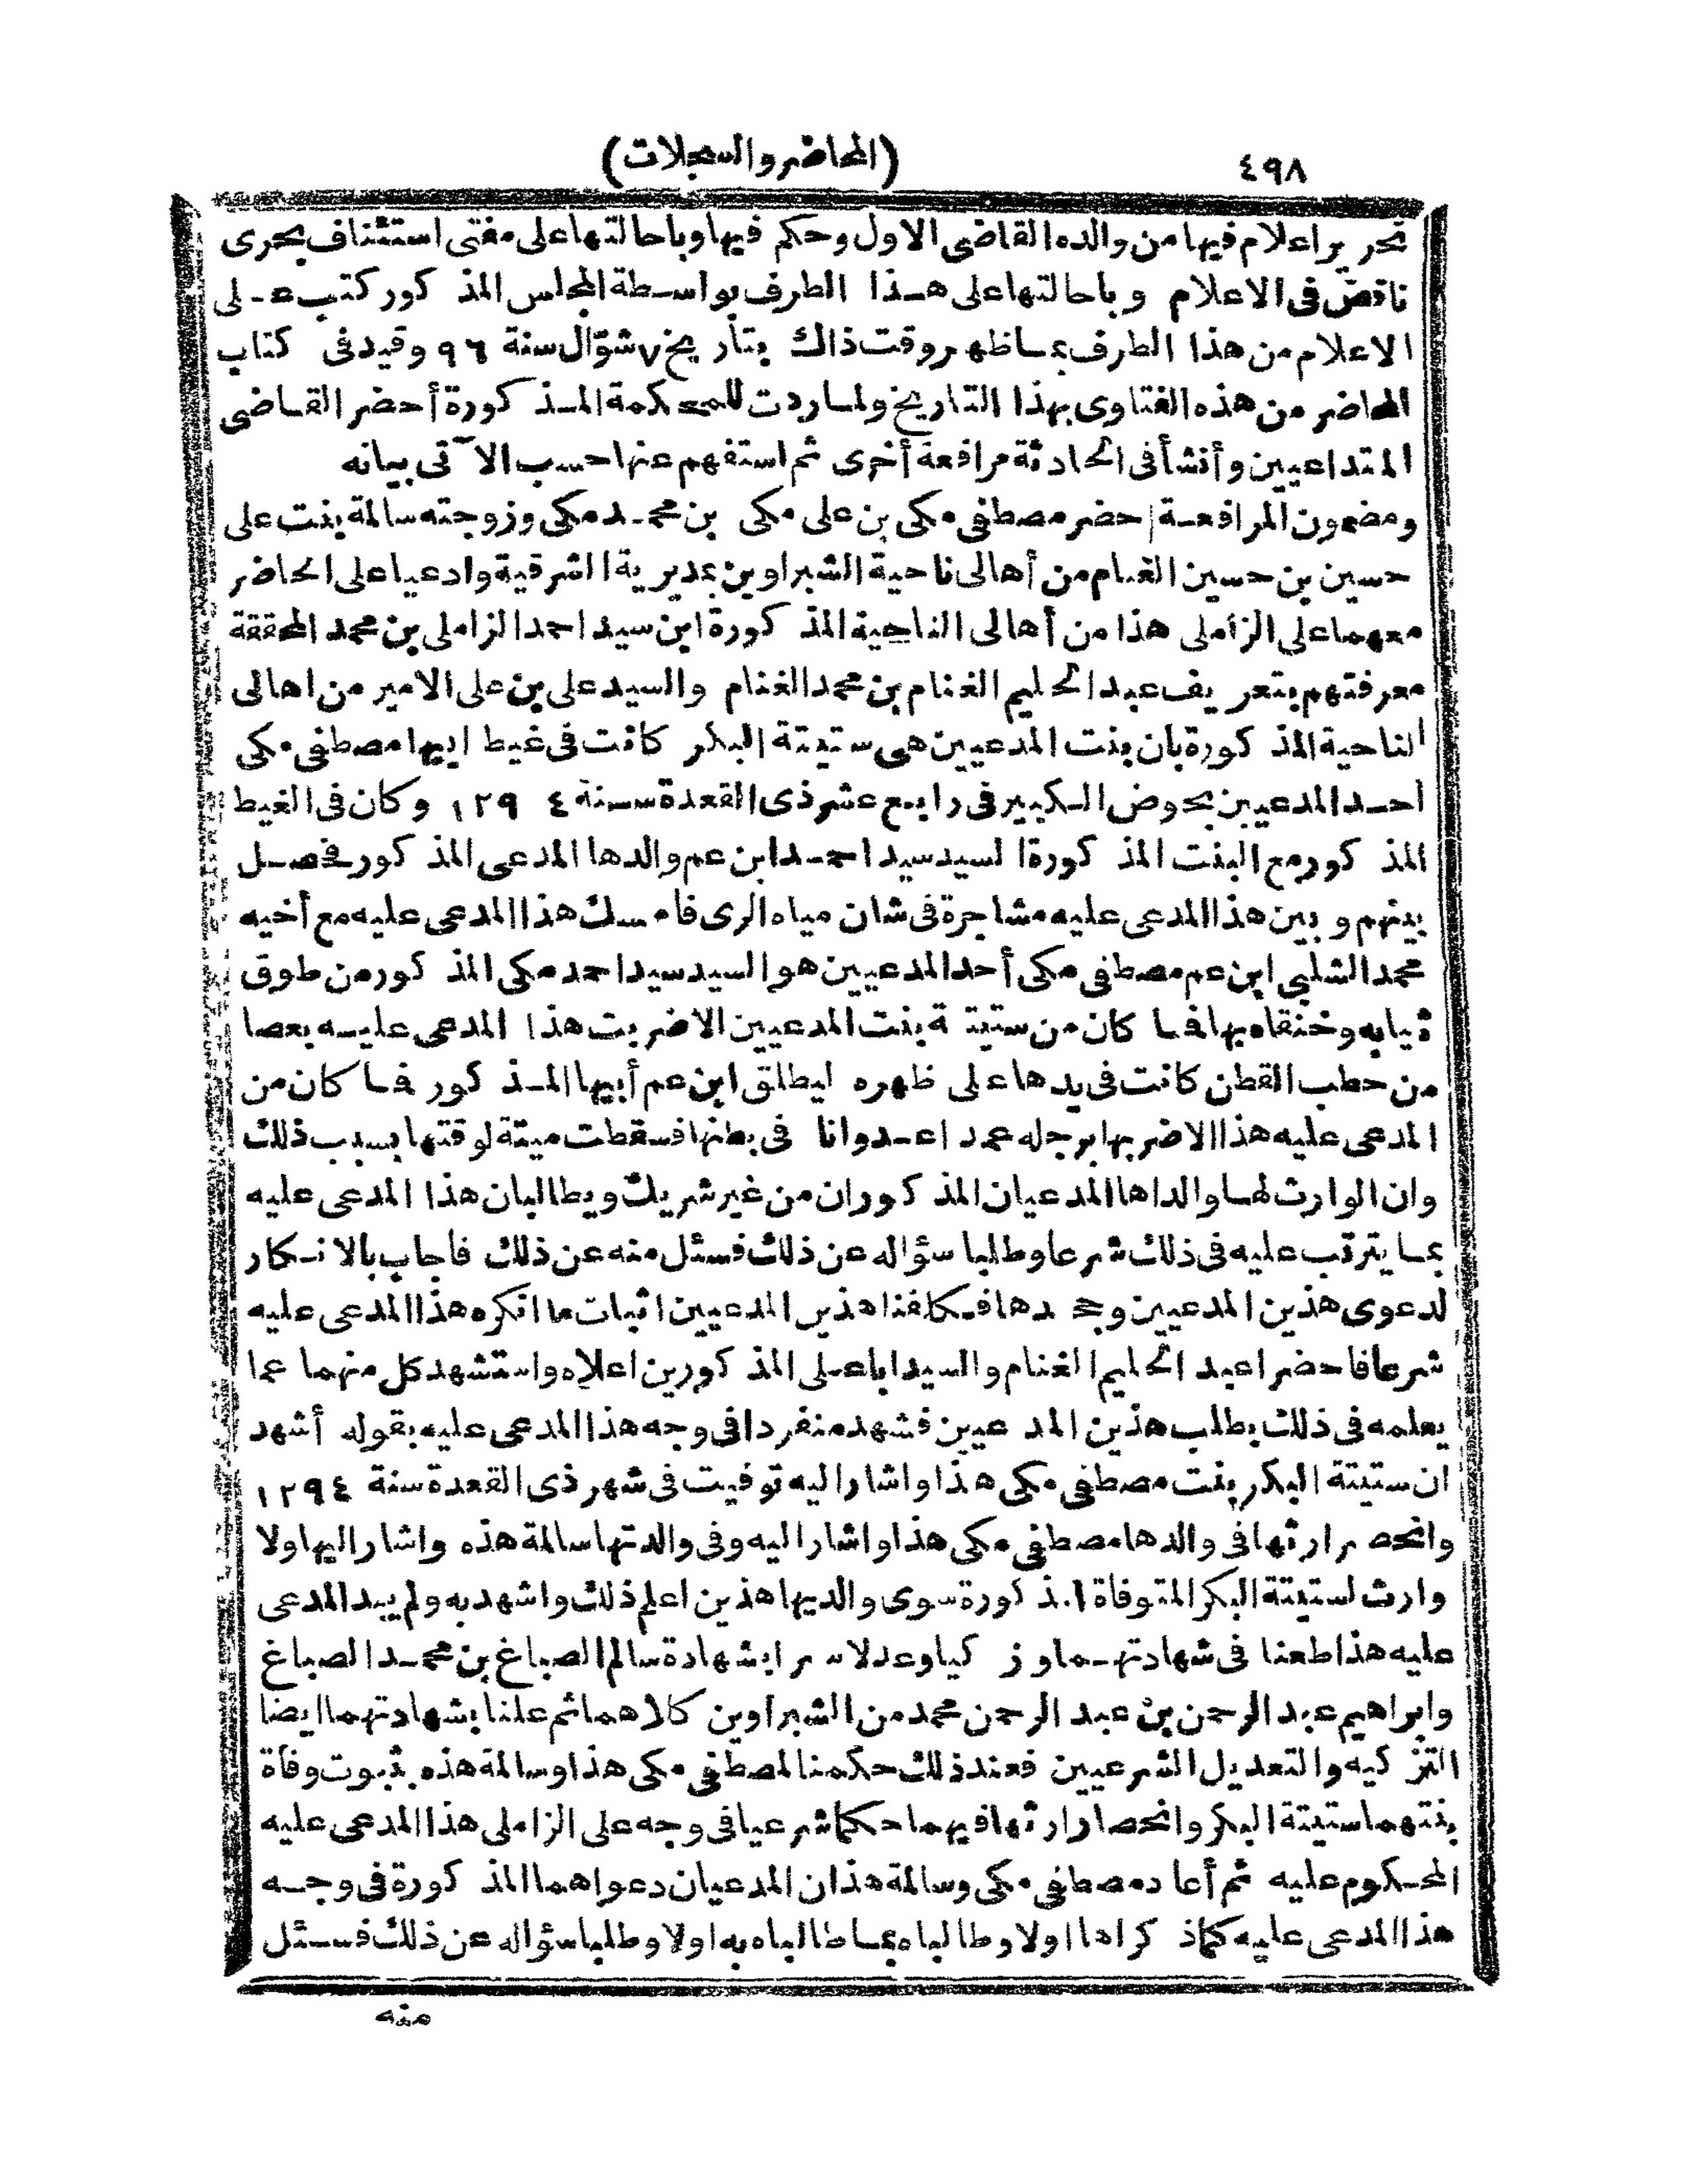 ٤٩٨
(المحاضر والسجلات)
تحرير اعلام فيها من والده القاضى الاول وحكم فيها وباحالتها على مفتى استئناف بحرى
ناقض فى الاعلام وباحالتها على هذا الطرف بواسطة المجلس المذكور كتب على
الاعلام من هذا الطرف بما ظهر وقت ذاك بتاريخ ٧ شوّال سنة ٩٦ وقيد فى كتاب
المحاضر من هذه الفتاوى بهذا التاريخ ولما ردت للمحكمة المذكورة أحضر القاضى
المتداعيين وأنشأ فى الحادثة مرافعة أخرى ثم استفهم عنها حسب الآتى بيانه
ومضمون المرافعة حضر مصطفى مكى بن على مكى بن محمد مكى وزوجته سالمة بنت على
حسين بن حسين الغنام من أهالى ناحية الشبراوين بمديرية الشرقية وادعيا على الحاضر
معهما على الزاملى هذا من أهالى الناحية المذكورة ابن سيد احمد الزاملى بن محمد المحققة
معرفتهم بتعريف عبد الحليم الغنام بن محمد الغنام والسيد على بن على الامير من اهالى
الناحية المذكورة بان بنت المدعيين هى ستيتة البكر كانت فى غيط ابيها مصطفى مكى
احد المدعيين بحوض الكبير فى رابع عشر ذى القعدة سنة ١٢٩٤ وكان فى الغيط
المذكور مع البنت المذكورة السيد سيد احمد ابن عم والدها المدعى المذكور فحصل
بينهم وبين هذا المدعى عليه مشاجرة فى شان مياه الرى فامسك هذا المدعى عليه مع أخيه
محمد الشلبى ابن عم مصطفى مكى أحد المدعيين هو السيد سيد احمد مكى المذكور من طوق
ثيابه وخنقاه بها فما كان من ستيتة بنت المدعيين الا ضربت هذا المدعى عليه بعصا
من حطب القطن كانت فى يدها على ظهره ليطلق ابن عم أبيها المذكور فما كان من
المدعى عليه هذا الا ضربها برجله عمدا عدوانا فى بطنها فسقطت ميتة لوقتها بسبب ذلك
وان الوارث لها والداها المدعيان المذكوران من غير شريك ويطالبان هذا المدعى عليه
بما يترتب عليه فى ذلك شرعا وطلبا سؤاله عن ذلك فسئل منه عن ذلك فاجاب بالانكار
لدعوى هذين المدعيين وجحدها فكلفنا هذين المدعيين اثبات ما انكره هذا المدعى عليه
شرعا فاحضرا عبد الحليم الغنام والسيد اباعلى المذكورين اعلاه واستشهد كل منهما عما
يعلمه فى ذلك بطلب هذين المدعيين فشهد منفردا فى وجه هذا المدعى عليه بقوله أشهد
ان ستيتة البكر بنت مصطفى مكى هذا واشار اليه توفيت فى شهر ذى القعدة سنة ١٢٩٤
وانحصر ارثها فى والدها مصطفى مكى هذا واشار اليه وفى والدتها سالمة هذه واشار اليها ولا
وارث لستيتة البكر المتوفاة المذكورة سوى والديها هذين اعلم ذلك واشهد به ولم يبد المدعى
عليه هذا طعنا فى شهادتهما وزكيا وعدلا سرا بشهادة سالم الصباغ بن محمد الصباغ
وابراهيم عبد الرحمن بن عبد الرحمن محمد من الشبراوين كلاهما ثم علنا بشهادتهما ايضا
التزكيه والتعديل الشرعيين فعند ذلك حكمنا لمصطفى مكى هذا وسالمة هذه بثبوت وفاة
بنتهما ستيتة البكر وانحصار ارثها فيهما حكما شرعيا فى وجه على الزاملى هذا المدعى عليه
المحكوم عليه ثم أعاد مصطفى مكى وسالمة هذان المدعيان دعواهما المذكورة فى وجه
هذا المدعى عليه كما ذكراها اولا وطالباه بما طالباه به اولا وطلبا سؤاله عن ذلك فسئل
منه